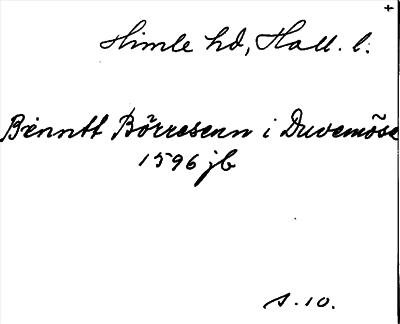 Himle hd, Hall. l.
Benntt Börresenn i Duvemöse
1596 jb
s. 10.